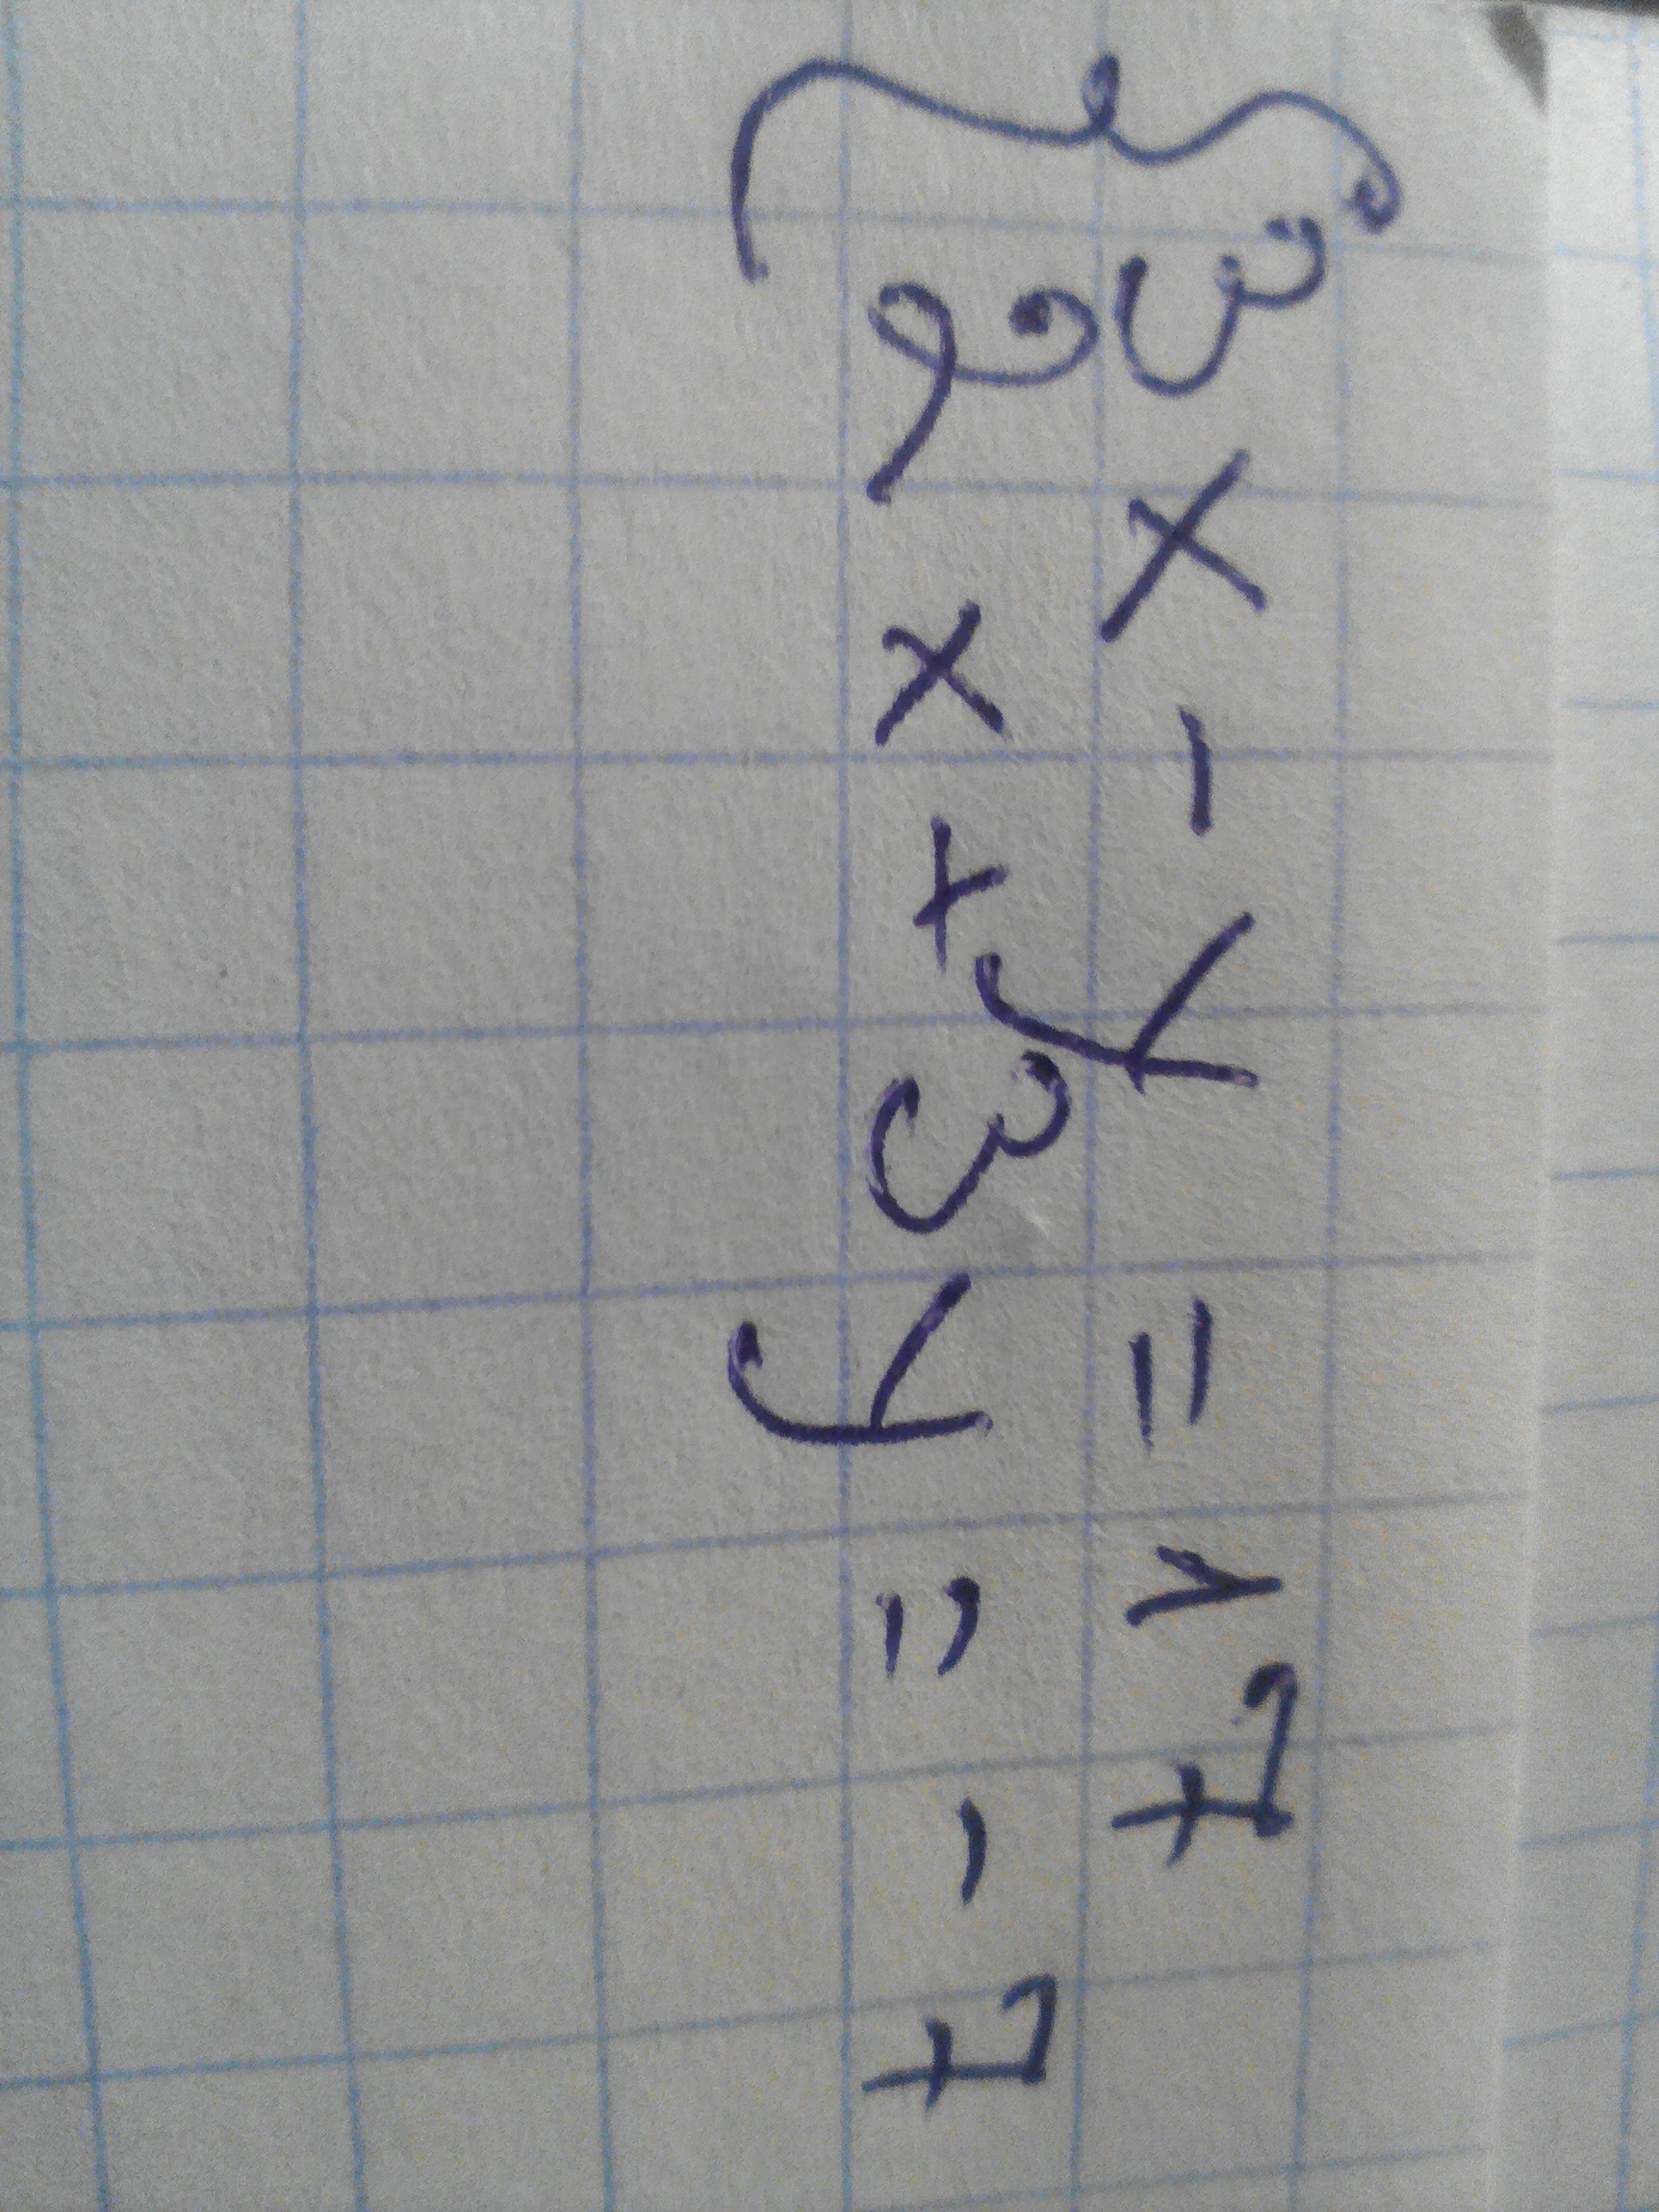 3x - y = 17
2x + 3y = -7